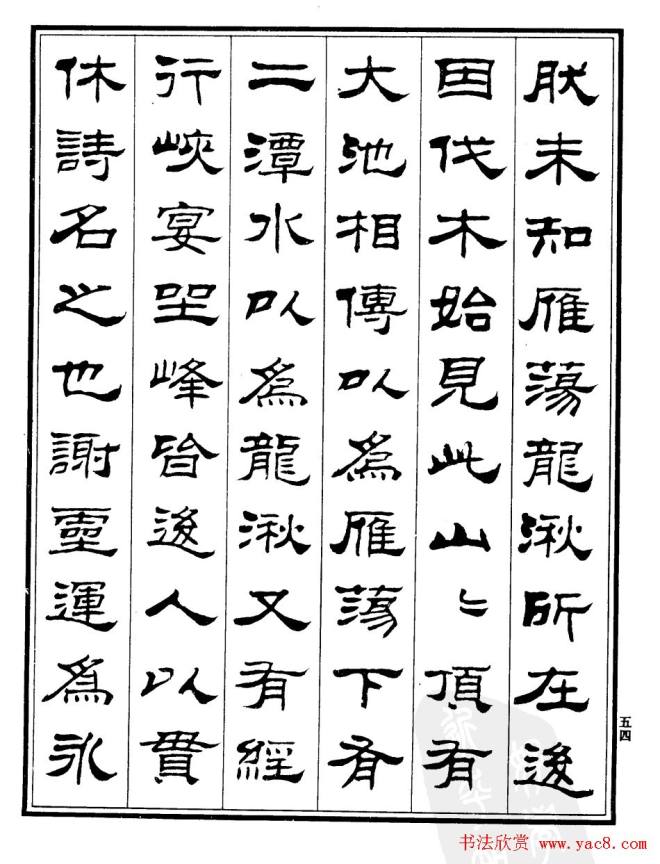 肰未知雁蕩龍湫所在後
因伐木始見此山〻頂有
大池相傳以爲雁蕩下有
二潭水以爲龍湫又有經
行峽宴坐峰皆後人以貫
休詩名之也謝靈運爲永
五四
书法欣赏 www.yac8.com